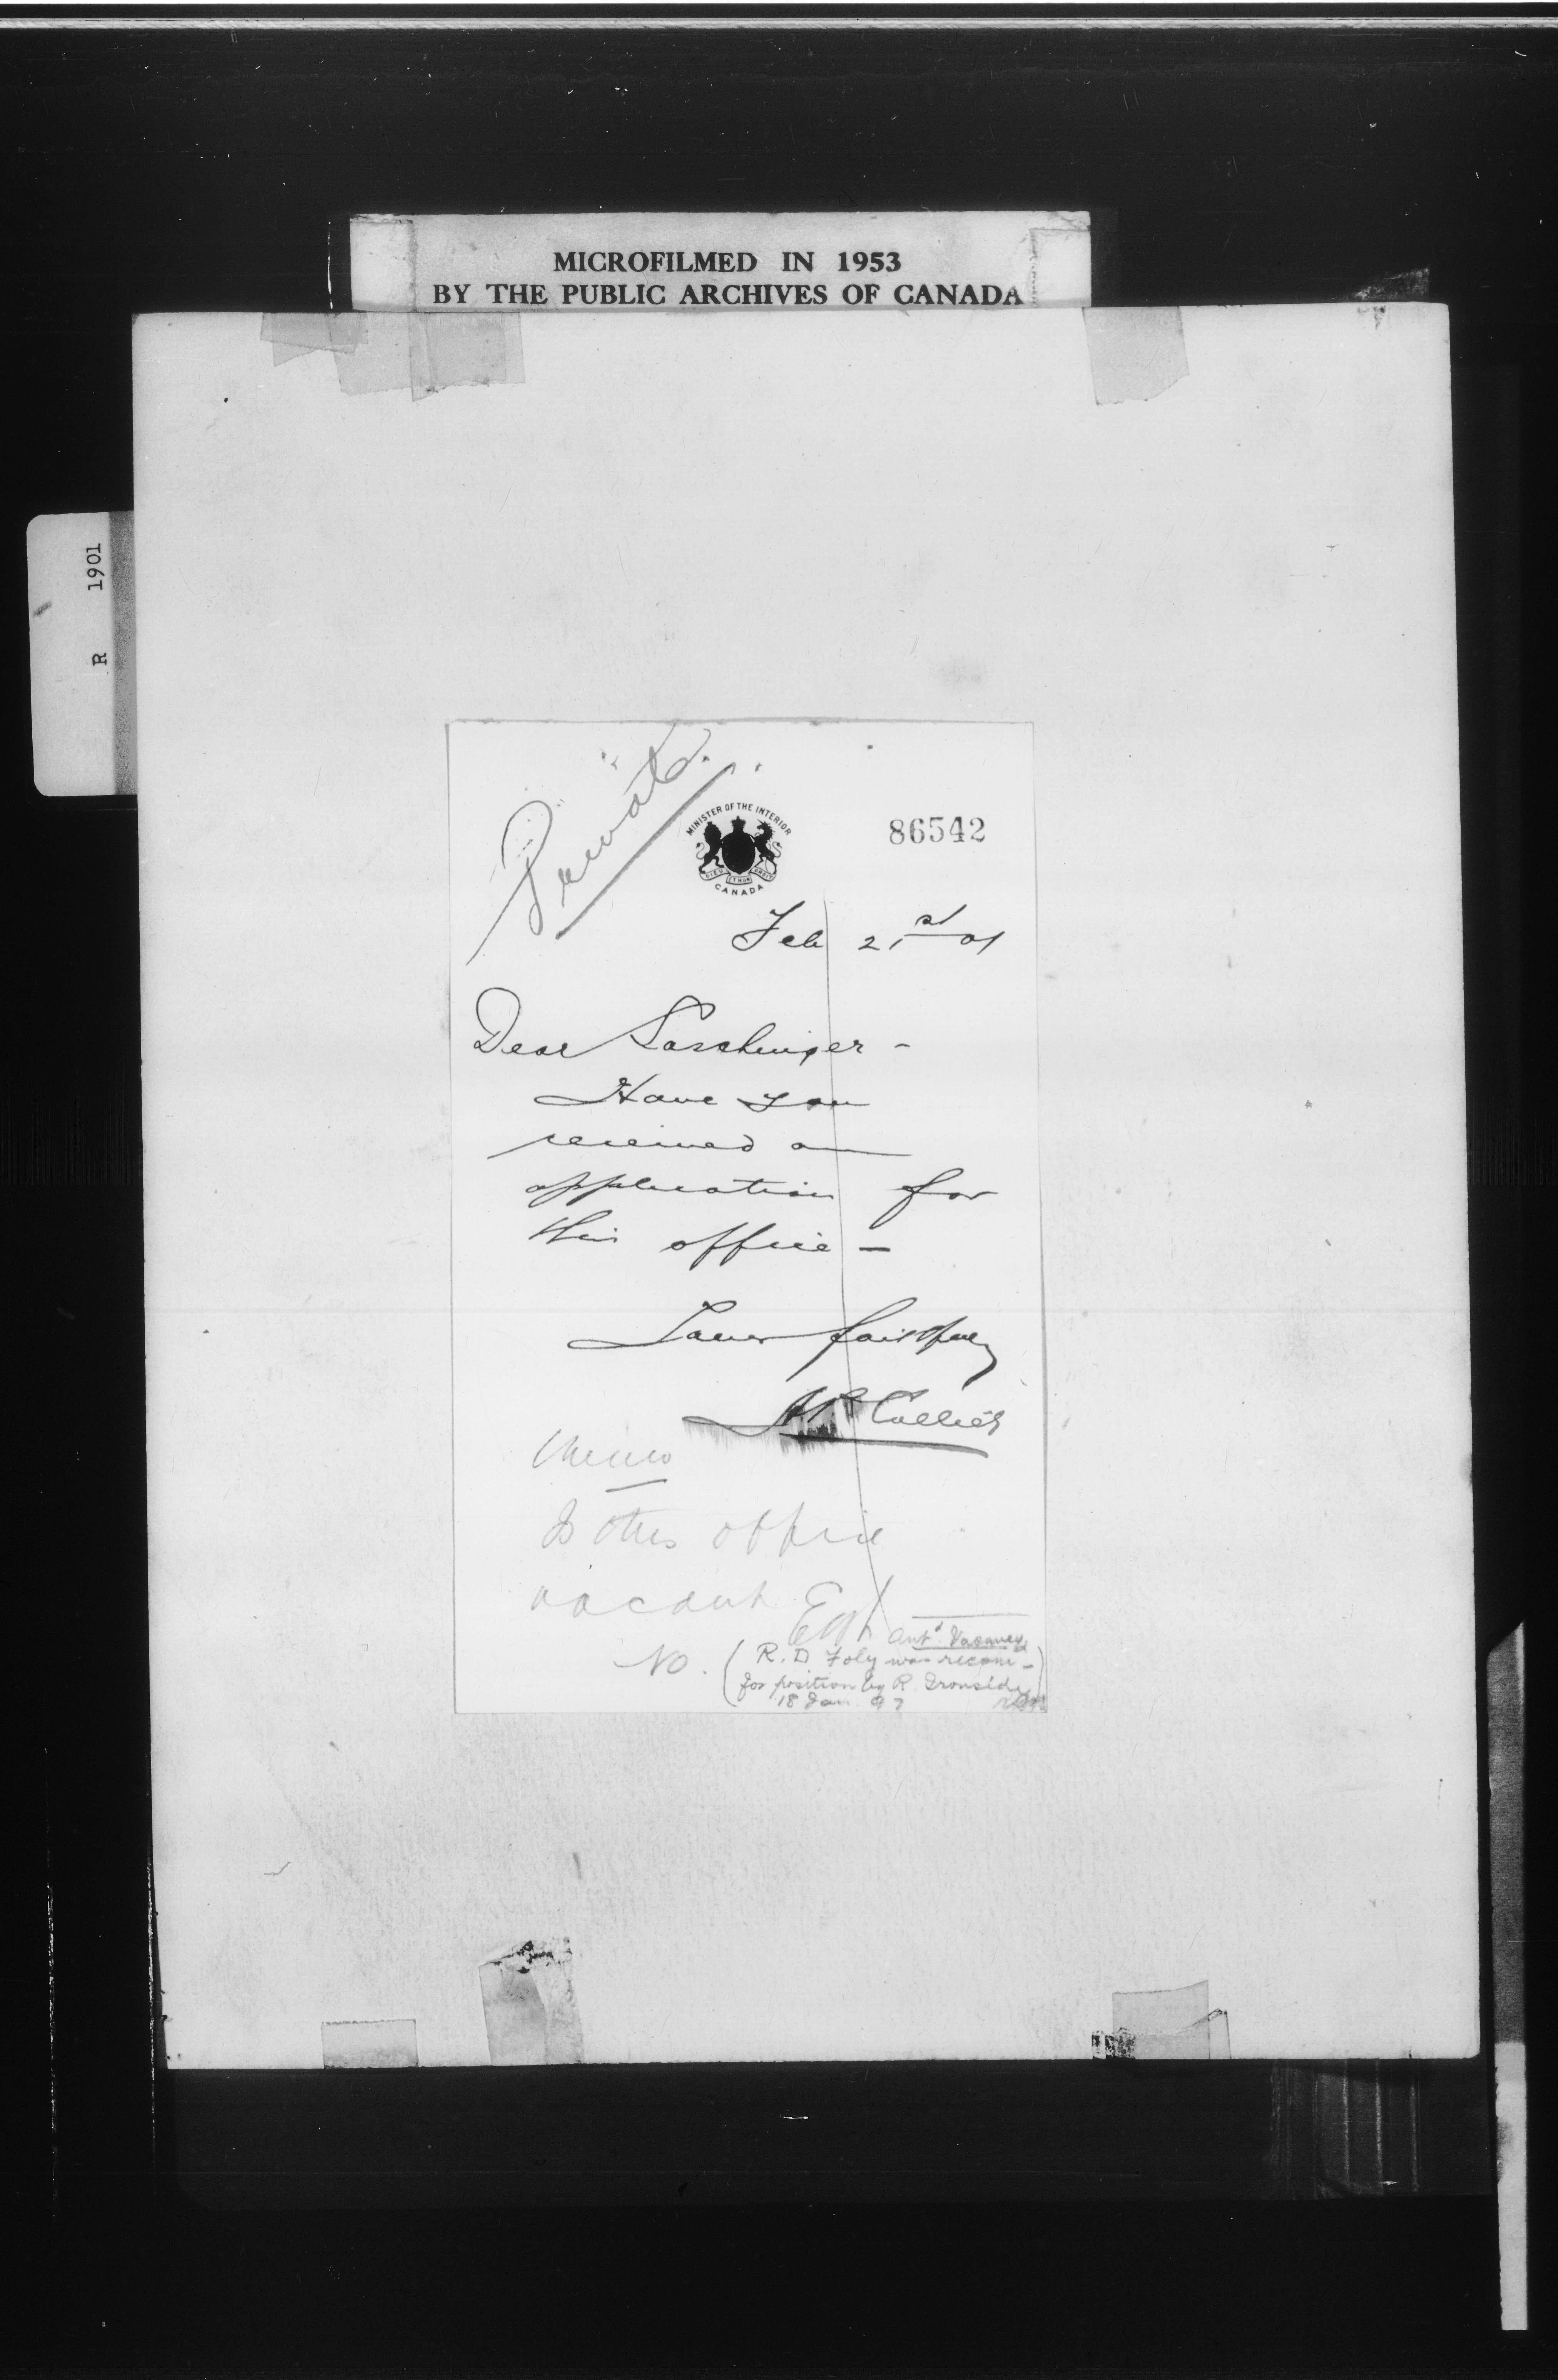 MICROFILMED IN 1953
BY THE PUBLIC ARCHIVES OF CANADA
R 1901
Private.
MINISTER OF THE INTERIOR
CANADA
86542
Feb 21st 01
Dear
Have you
received an
application for
this office -
Yours faithfully
Collier
Memo
Is this office
vacant
No.
Vacancy
(R. D Foly was recom-
for position by R. Ironside)
18 Jan 97